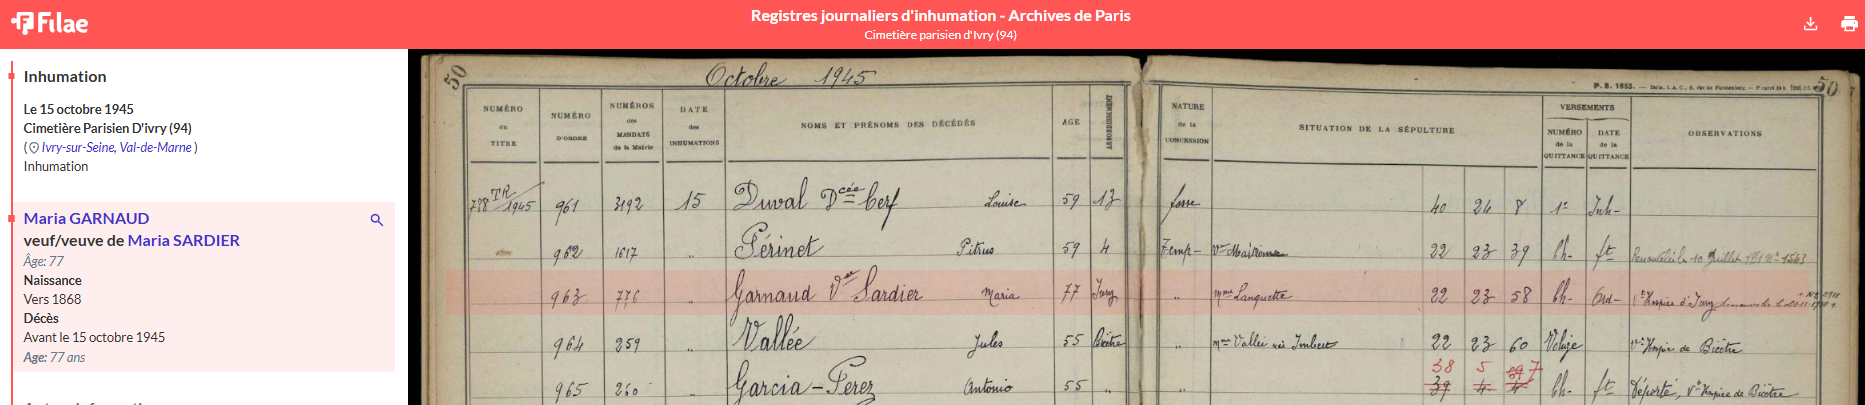 Filae
Registres journaliers d'inhumation - Archives de Paris
Cimetière parisien d'Ivry (94)
Inhumation
Le 15 octobre 1945
Cimetière Parisien D'ivry (94)
( Ivry-sur-Seine, Val-de-Marne )
Inhumation
Maria GARNAUD
veuf/veuve de Maria SARDIER
Âge: 77
Naissance
Vers 1868
Décès
Avant le 15 octobre 1945
Age: 77 ans
50 Octobre 1945 50
NUMÉRO du TITRE
NUMÉRO D'ORDRE
NUMÉROS des MANDATS de la Mairie
DATE des INHUMATIONS
NOMS ET PRÉNOMS DES DÉCÉDÉS
AGE
ARRONDISSEMENT
NATURE de la CONCESSION
SITUATION DE LA SÉPULTURE
VERSEMENTS
NUMÉRO de la QUITTANCE
DATE de la QUITTANCE
OBSERVATIONS
TR 1945 961 3192 15 Duval Dcée Cerf Louise 59 13 fosse 40 24 8
962 1617 " Périnet 59 4 Temp- 22 23 39 ft
963 776 " Garnaud Vve Sardier Maria 77 Ivry " mme Lanquette 22 23 58
964 259 " Vallée Jules 55 Bicêtre " mme Vallée née Imbert 22 23 60 Hospice de Bicêtre
38 5 7
965 260 " Garcia-Perez Antonio 55 " " 39 4 ft Déporté, Hospice de Bicêtre